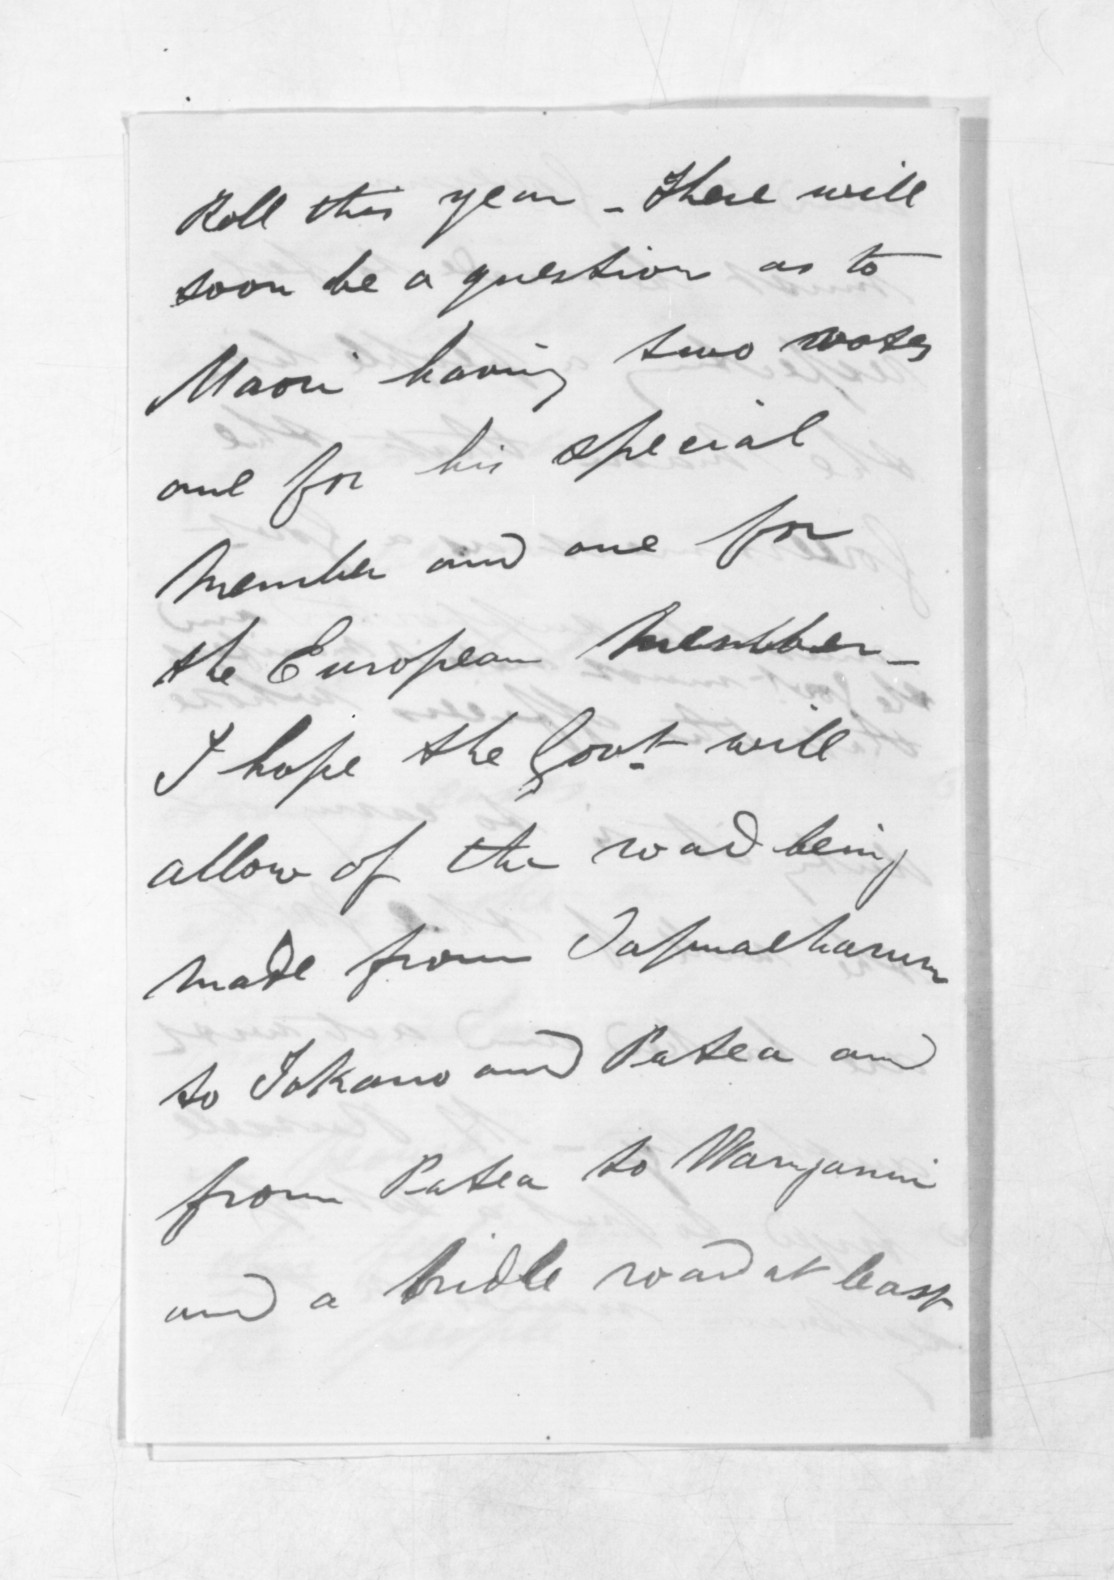 Roll this year - There will
soon be a question as to
Maori having two votes
one for his special
Member and one for
the European Member -
I hope the Govt will
allow of the road being
made from Tapuaeharuru
to Tokano and Patea and
from Patea to Wanganui
and a bridle road at least